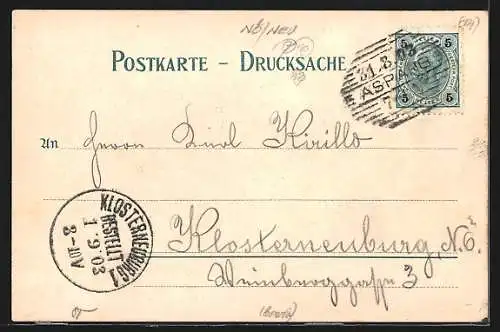 NÖ/NEU
POSTKARTE - DRUCKSACHE
5 5
31.8.03
ASPANG
5 5
An Herrn Karl Kirillo
KLOSTERNEUBURG 1
BESTELLT
1.9.03
8-10V
Klosterneuburg, N.Ö.
Weinberggasse 3